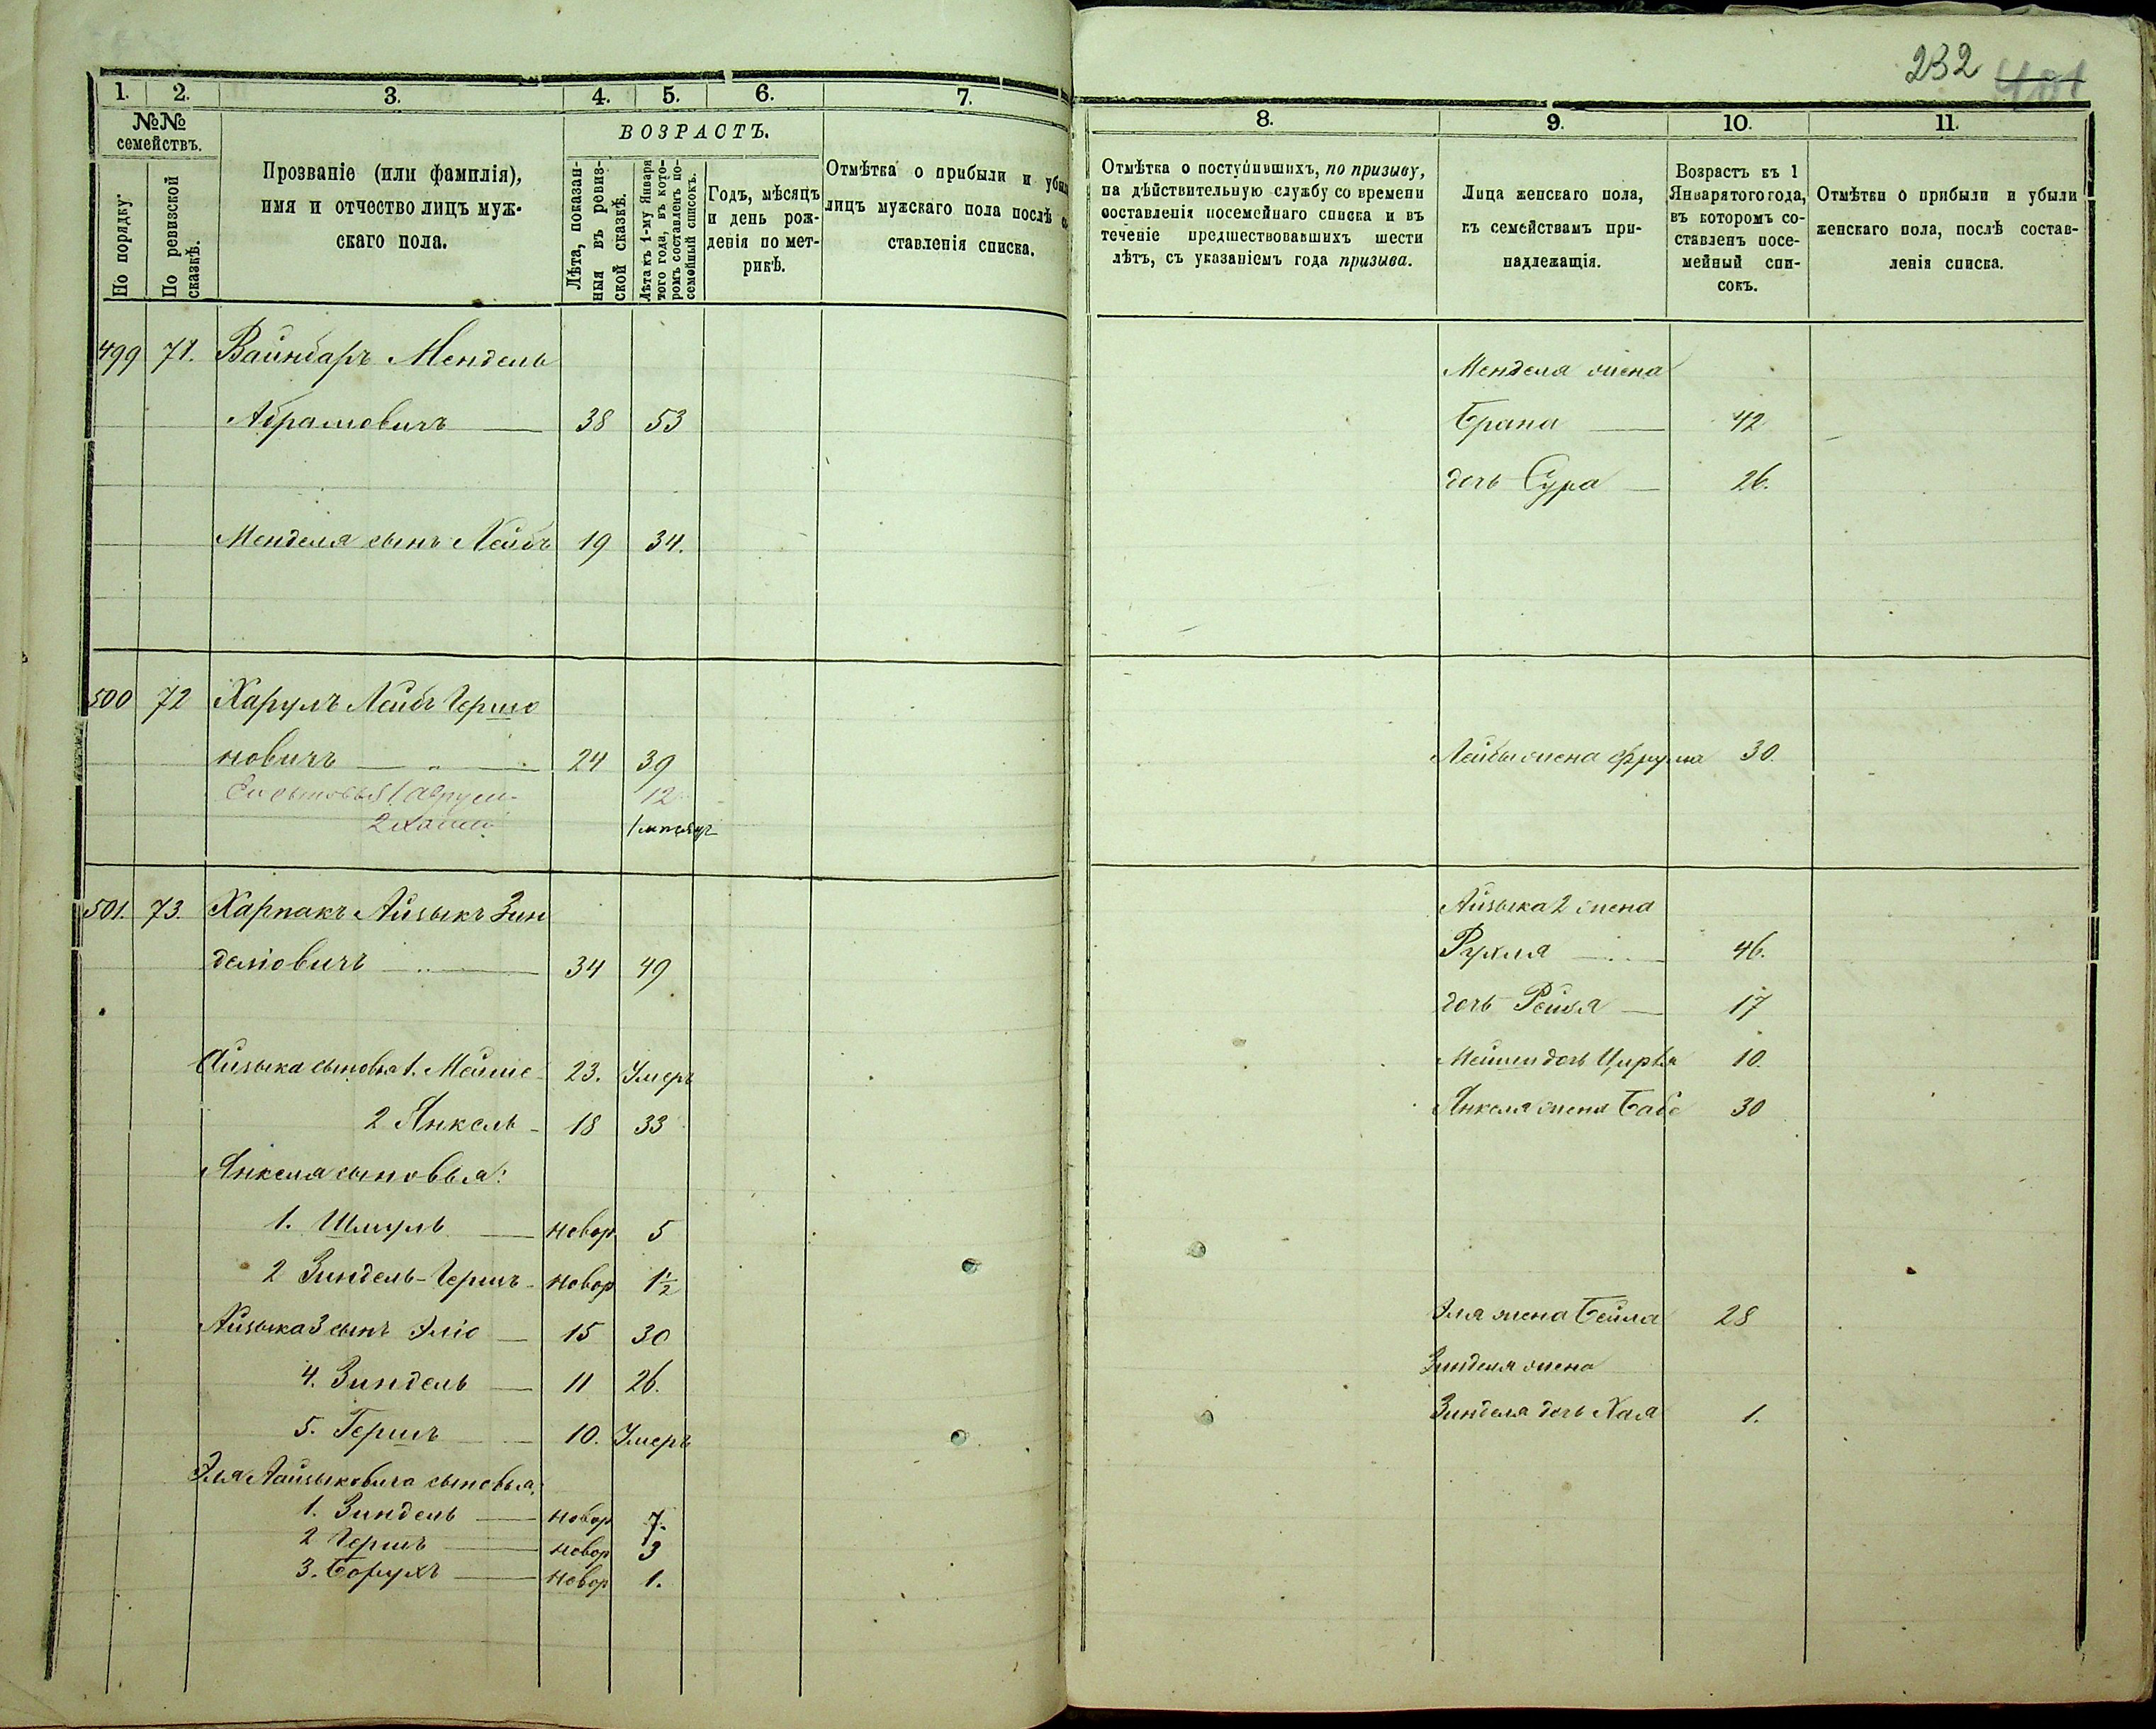 232
401
1.
2.
3.
4.
5.
6.
7.
№№ семействъ.
По порядку
По ревизской сказкѣ.
Прозваніе (или фамилія),
имя и отчество лицъ муж-
скаго пола.
ВОЗРАСТЪ.
Лѣта, показан-
ныя въ ревиз-
ской сказкѣ.
Лѣта къ 1-му Января
того года, въ кото-
ромъ составленъ по-
семейный списокъ.
Годъ, мѣсяцъ
и день рож-
денія по мет-
рикѣ.
Отмѣтка о прибыли и убыли
лицъ мужскаго пола послѣ со-
ставленія списка.
499 71. Вайнбаръ Мендель
Абрамовичъ — 38 53
Менделя сынъ Лейбъ 19 34.
500 72 Харулъ Лейбъ Гершо
новичъ — 24 39
Ею сыновья 1. Абрум- 12
2 Хаим 1 мѣсяцъ
501. 73. Харпакъ Айзыкъ Зин
деліовичъ — 34 49
Айзыка сыновья 1. Мейше 23. Умеръ
2 Янкель - 18 33
Янкеля сыновья:
1. Шмуль — новор 5
2 Зиндель-Гершъ - новор 1½
Айзыка 3 сынъ Эліо — 15 30
4. Зиндель — 11 26.
5. Гершъ — 10. Умеръ
Эля Айзыковича сыновья:
1. Зиндель — новор 7.
2 Гершъ — новор 3
3. Борухъ — новор 1.
8.
9.
10.
11.
Отмѣтка о поступившихъ, по призыву,
на дѣйствительную службу со времени
составленія посемейнаго списка и въ
теченіе предшествовавшихъ шести
лѣтъ, съ указаніемъ года призыва.
Лица женскаго пола,
къ семействамъ при-
надлежащія.
Возрастъ къ 1
Января того года,
въ которомъ со-
ставленъ посе-
мейный спи-
сокъ.
Отмѣтки о прибыли и убыли
женскаго пола, послѣ состав-
ленія списка.
Менделя жена
Брана — 42
дочь Сура — 26.
Лейбы жена Фрума 30.
Айзыка 2 жена
Рухля — 46.
дочь Рейзя — 17
Мейши дочь Цирля 10.
Янкеля жена Бабе 30
Эля жена Бейла 28
Зинделя жена
Зинделя дочь Хая 1.